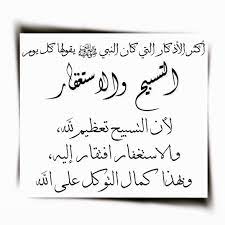 أكثر الأذكار التي كان النبي ﷺ يقولها كل يوم
التسبيح والاستغفار
لأن التسبيح تعظيم لله،
والاستغفار افتقار إليه،
وبهذا كمال التوكل على الله